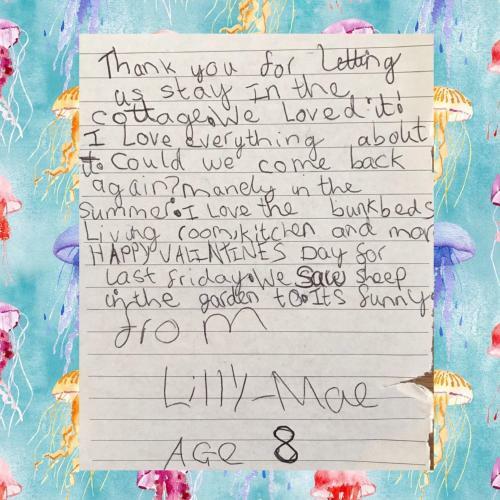 Thank you for Letting
us stay in the
cottage. We Loved it!
I Love everything about
it. Could we come back
again? manely in the
summer. I Love the bunkbeds
Living room, kitchen and mor
HAPPY VALINTINES Day for
Last friday. We saw sheep
in the garden to. Its funny
from
Lilly-Mae
AGe 8